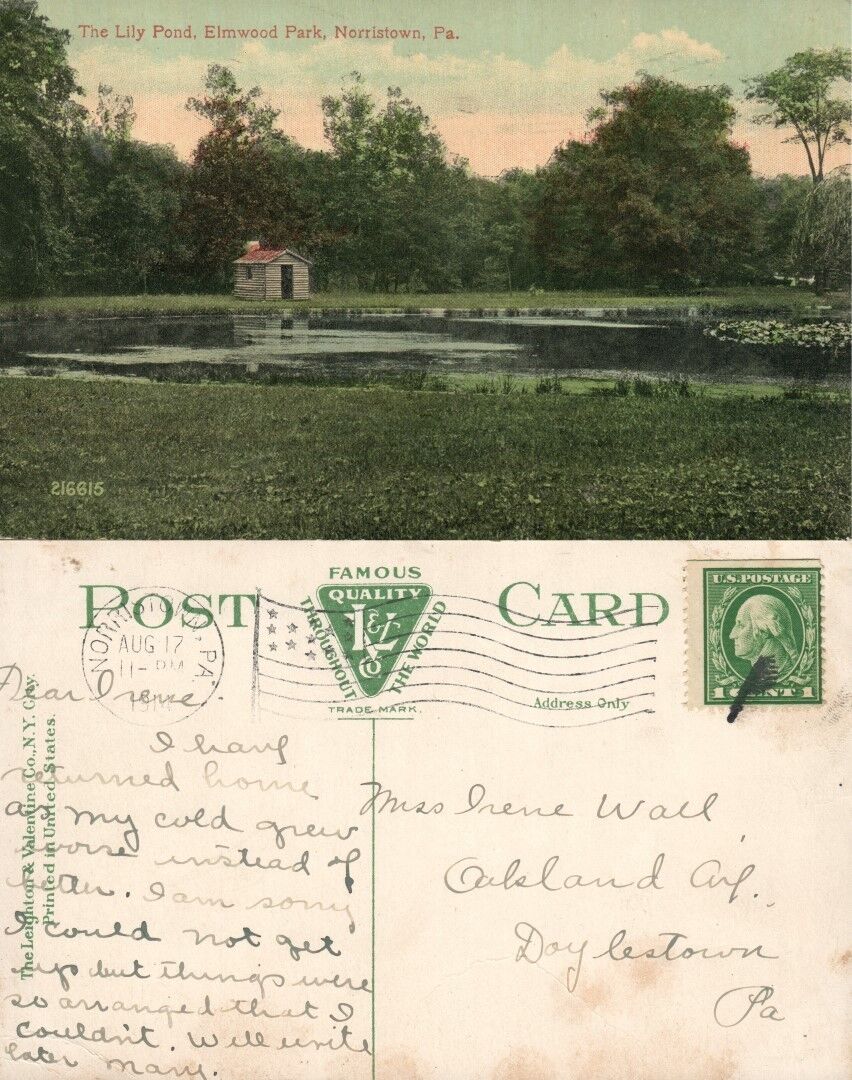 The Lily Pond, Elmwood Park, Norristown, Pa.
216615
POST CARD
FAMOUS
QUALITY
THROUGHOUT THE WORLD
L & V
Co
TRADE MARK.
NORRISTOWN, PA
AUG 17
11- PM
U.S. POSTAGE
1 CENT 1
Address Only
The Leighton & Valentine Co., N.Y. City.
Printed in United States.
Dear Irene.
I have
returned home
as my cold grew
worse instead of
better. I am sorry
I could not get
up but things were
so arranged that I
couldn't. Will write
later Mary.
Miss Irene Wall,
Oakland Av.
Doylestown
Pa